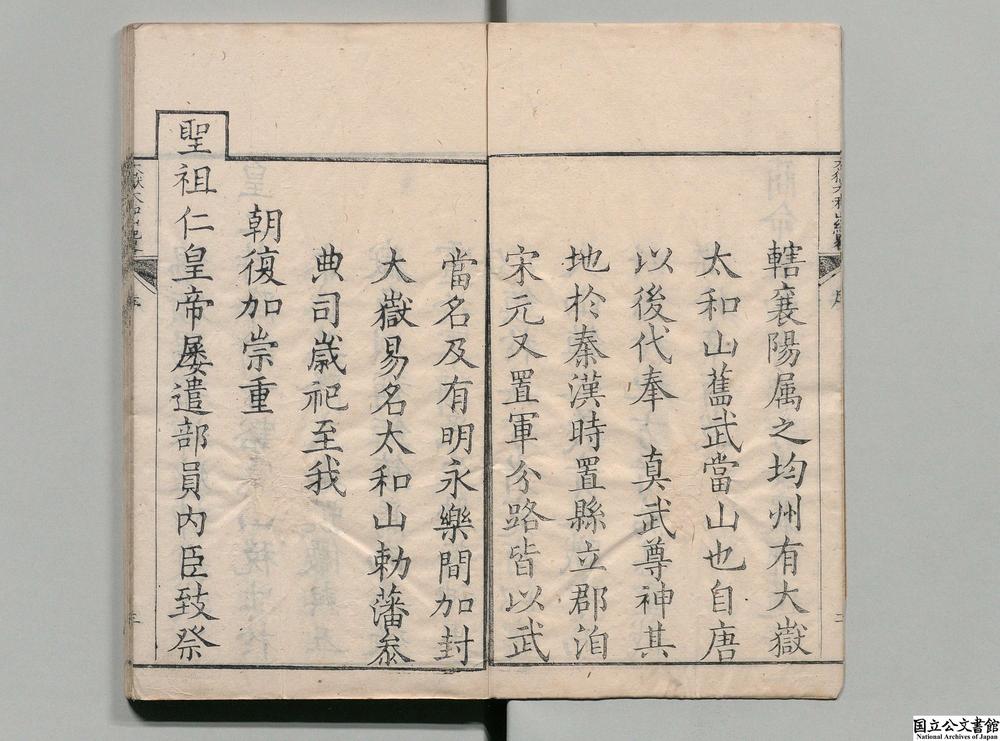 轄襄陽属之均州有大嶽
太和山舊武當山也自唐
以後代奉　真武尊神其
地於秦漢時置縣立郡洎
宋元又置軍分路皆以武
當名及有明永樂間加封
大嶽易名太和山勅藩叅
典司嵗祀至我
朝復加崇重
聖祖仁皇帝屡遣部員内臣致祭
序
三
国立公文書館
National Archives of Japan